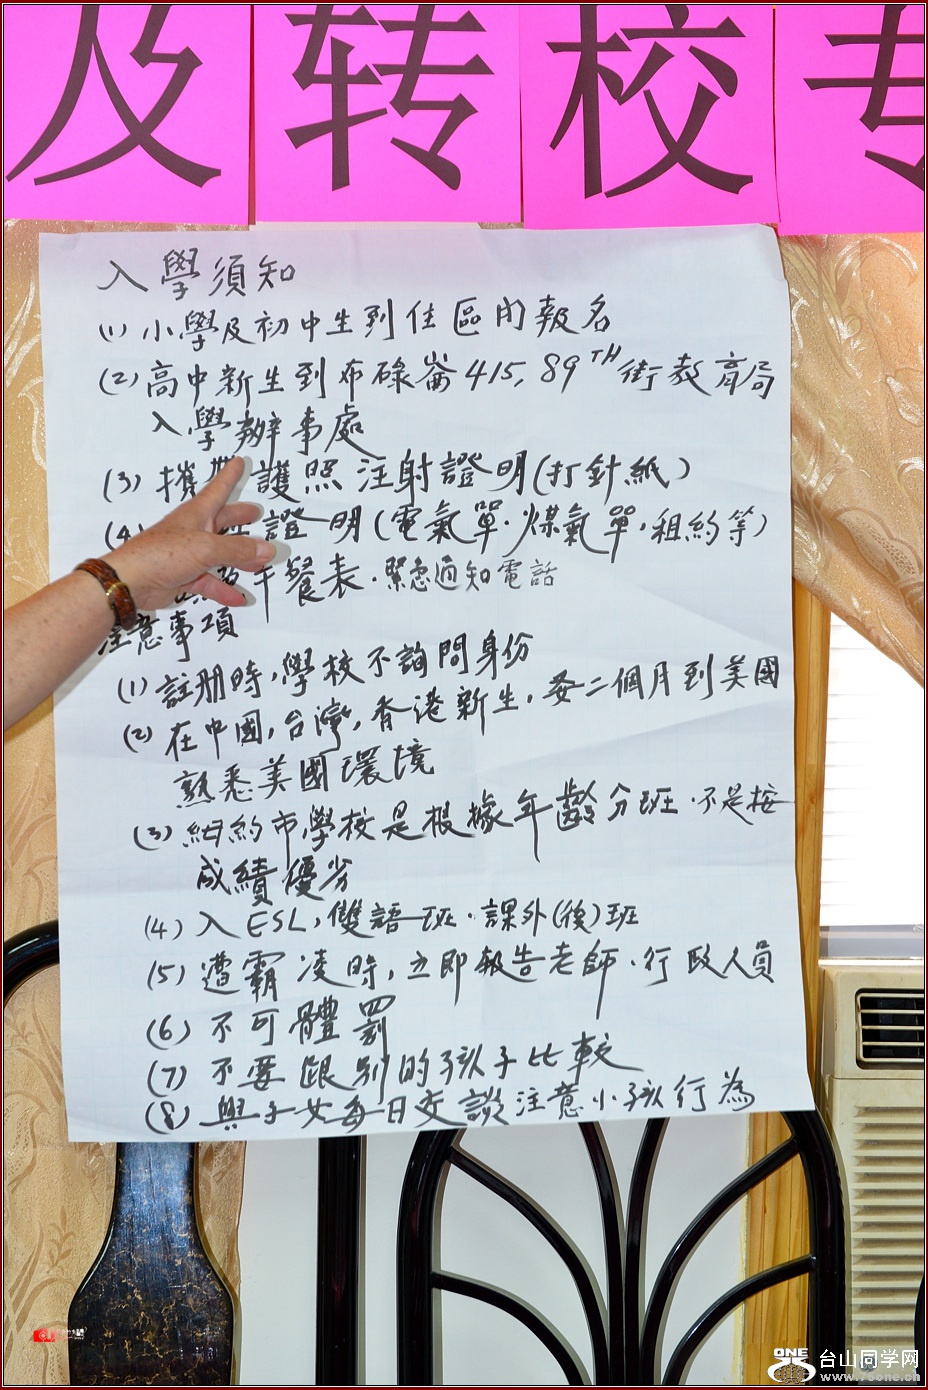 及转校专
入學須知
(1) 小學及初中生到住區內報名
(2) 高中新生到布碌崙415, 89TH街教育局
入學辦事處
(3) 攜 護照 注射證明(打針紙)
(4 證明(電氣單.煤氣單.租約等)
午餐表.緊急通知電話
注意事項
(1) 註册時,學校不詢問身份
(2) 在中國,台灣,香港新生,委二個月到美國
熟悉美國環境
(3) 紐約市學校是根據年齡分班.不是按
成績優劣
(4) 入ESL,雙語班.課外(後)班
(5) 遭霸凌時,立即報告老師.行政人員
(6) 不可體罰
(7) 不要跟別的孩子比較
(8) 與子女每日交談注意小孩行為
ONE
台山同学网
www.75one.cn